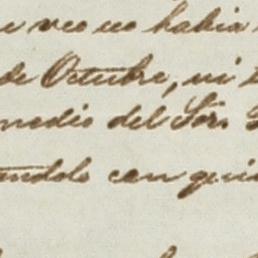 e veo no habia
de Octubre, ni
medio del Sor.
andolo con quie